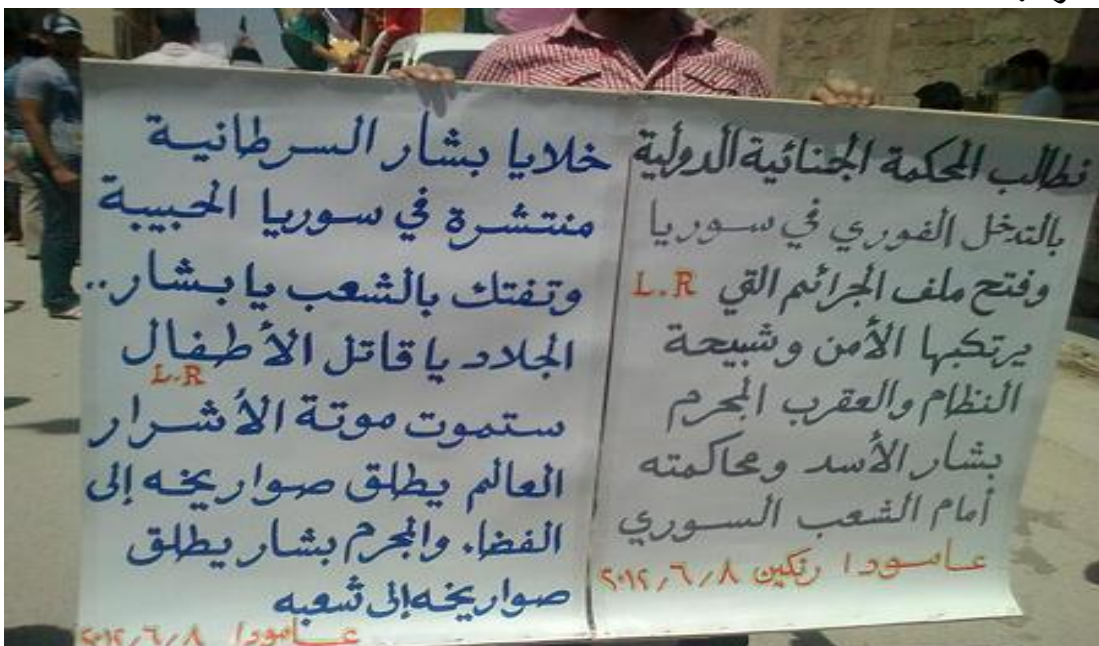 نطالب المحكمة الجنائية الدولية
بالتدخل الفوري في سوريا
وفتح ملف الجرائم التي L.R
يرتكبها الأمن وشبيحة
النظام والعقرب المجرم
بشار الأسد ومحاكمته
أمام الشعب السوري
عامودا رنكين ٢٠١٢/٦/٨
خلايا بشار السرطانية
منتشرة في سوريا الحبيبة
وتفتك بالشعب يا بشار..
الجلاد يا قاتل الأطفال
L.R
ستموت موتة الأشرار
العالم يطلق صواريخه إلى
الفضاء والمجرم بشار يطلق
صواريخه إلى شعبه
عامودا ٢٠١٢/٦/٨